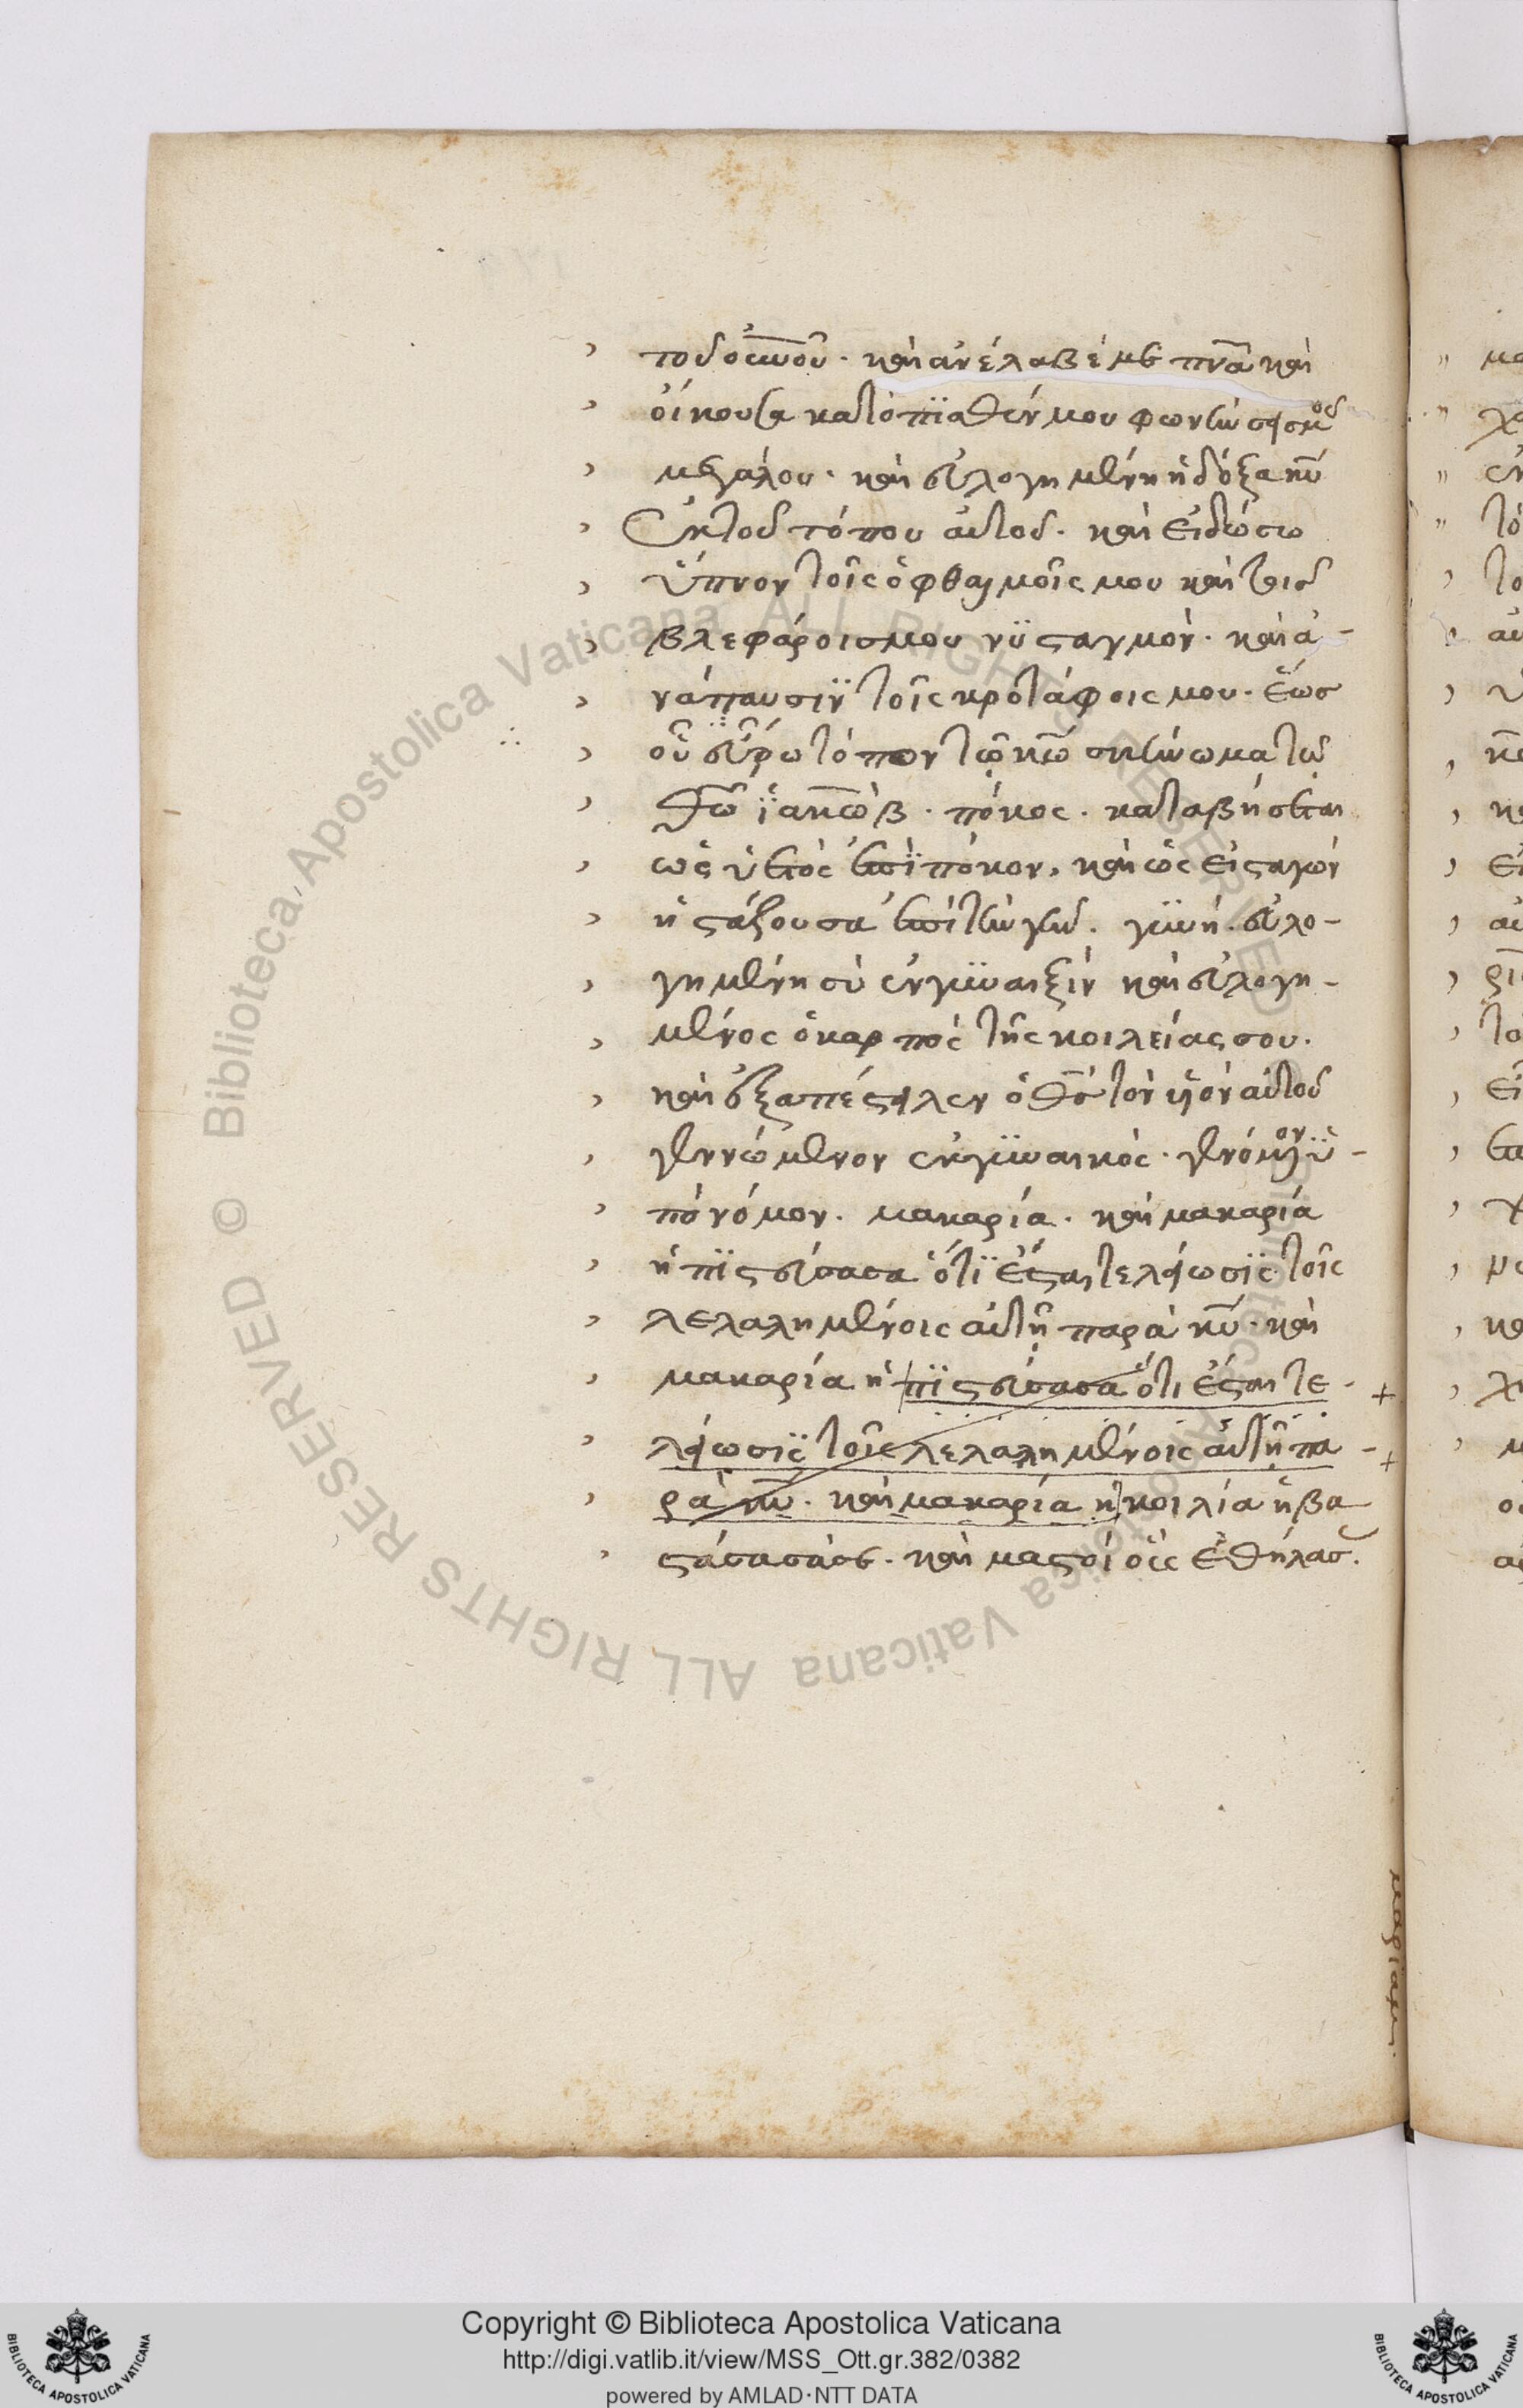 ποδοιποῦ. καὶ ἀνέλαβέ με πνᾶ καὶ
οἴκουσα κατόπϊσθέν μου φωνὴν σεισμοῦ
μεγάλου. καὶ εὐλογημένη ἡ δόξα κυ̅
ἐκ τοῦ τόπου αὐτοῦ. καὶ εἰ δώσω
ὕπνον τοῖς ὀφθαλμοῖς μου καὶ τοῖσ
βλεφάροισ μου νϋσταγμὸν. καὶ ἀ-
νάπαυσιν τοῖς κροτάφοις μου. ἕωσ
οὗ εὕρω τόπον τῷ κω̅ σκήνωμα τῷ
θω̅ ϊακὼβ. πόκος. καταβήσεται
ὡς ὑετὸς ἐπὶ πόκον, καὶ ὡς εἰ σταγὼν
ἡ στάζουσα ἐπὶ τὴν γῆν. γϋνή. εὐλο-
γημένη σὺ ἐν γϋναιξὶν καὶ εὐλογη-
μένος ὁ καρπός τῆς κοιλείας σου.
καὶ ἐξαπέστειλεν ὁ θσ̅ τὸν ϋἱὸν αὐτοῦ
γεννώμενον ἐκ γϋναικός. γενόμενον ϋ-
πὸ νόμον. μακαρία. καὶ μακαρία
ἡ πϊστεύσασα ὅτϊ ἔσται τελείωσϊς τοῖς
λελαλημένοις αὐτῇ παρὰ κυ̅. καὶ
μακαρία ἡ πϊστεύσασα ὅτι ἔσται τε- +
λείωσϊς τοῖς λελαλημένοις αὐτῇ πα- +
ρὰ κυ̅. καὶ μακαρία ἡ κοιλία ἡ βα
στάσασά σε. καὶ μαστοί οἷς ἐθήλασ.
μαρίαμ.
Copyright © Biblioteca Apostolica Vaticana
http://digi.vatlib.it/view/MSS_Ott.gr.382/0382
powered by AMLAD·NTT DATA